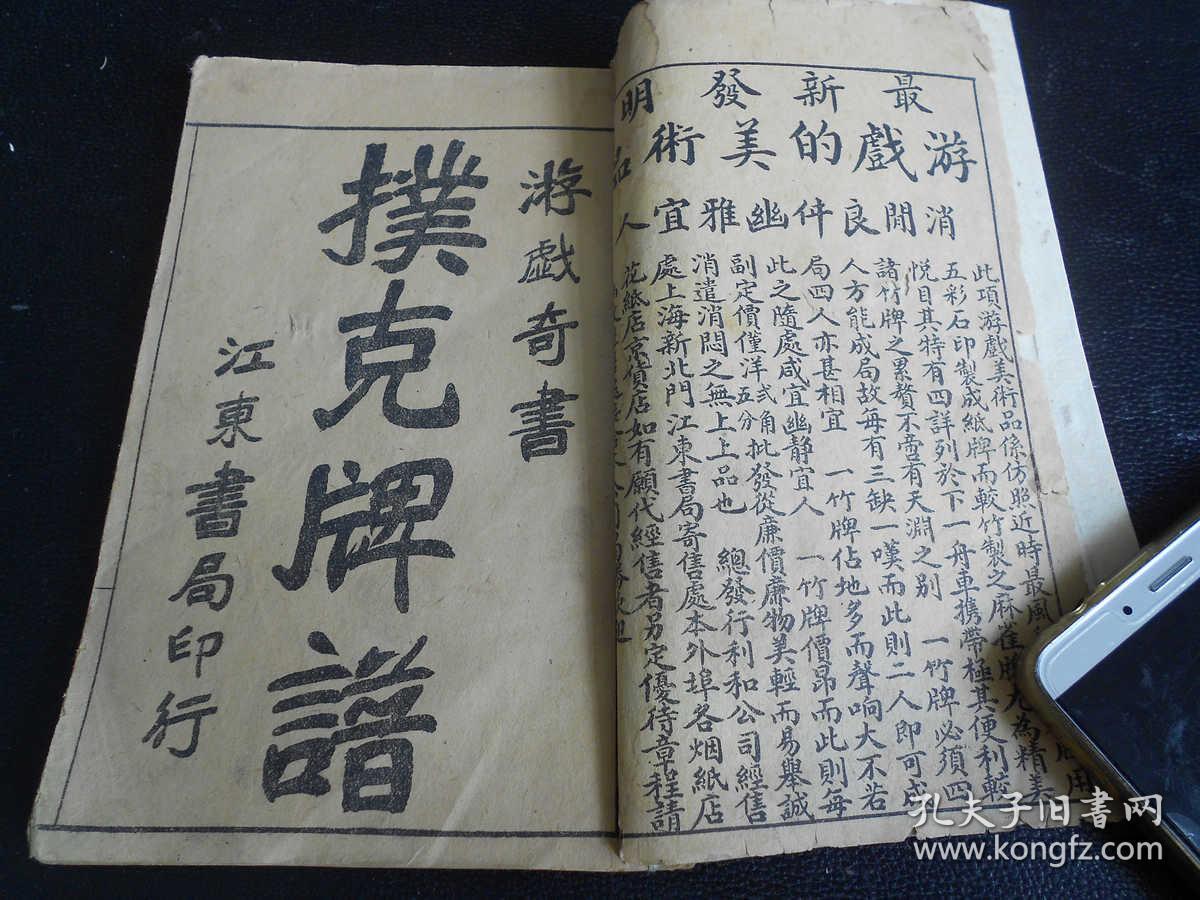 最新發明
游戲的美術品
消閒良伴幽雅宜人
此項游戲美術品係仿照近時最風
五彩石印製成紙牌而較竹製之麻雀牌尤為精美
悅目其特有四詳列於下一舟車携帶極其便利較
諸竹牌之累贅不啻有天淵之別　一竹牌必須四
人方能成局故每有三缺一嘆而此則二人即可成
局四人亦甚相宜　一竹牌佔地多而聲响大不若
此之隨處咸宜幽静宜人　一竹牌價昂而此則每
副定價僅洋弍角五分批發從廉價廉物美輕而易舉誠
消遣消悶之無上上品也　總發行利和公司經售
處上海新北門江東書局寄售處本外埠各烟紙店
花紙店京貨店如有願代經售者另定優待章程請
游戲奇書
撲克牌譜
江東書局印行
孔夫子旧書网
www.kongfz.com